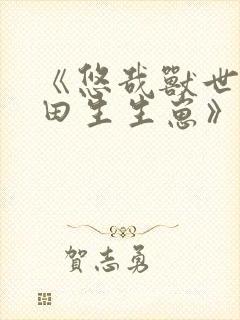 《悠哉獸世
田生生崽》
賀志勇